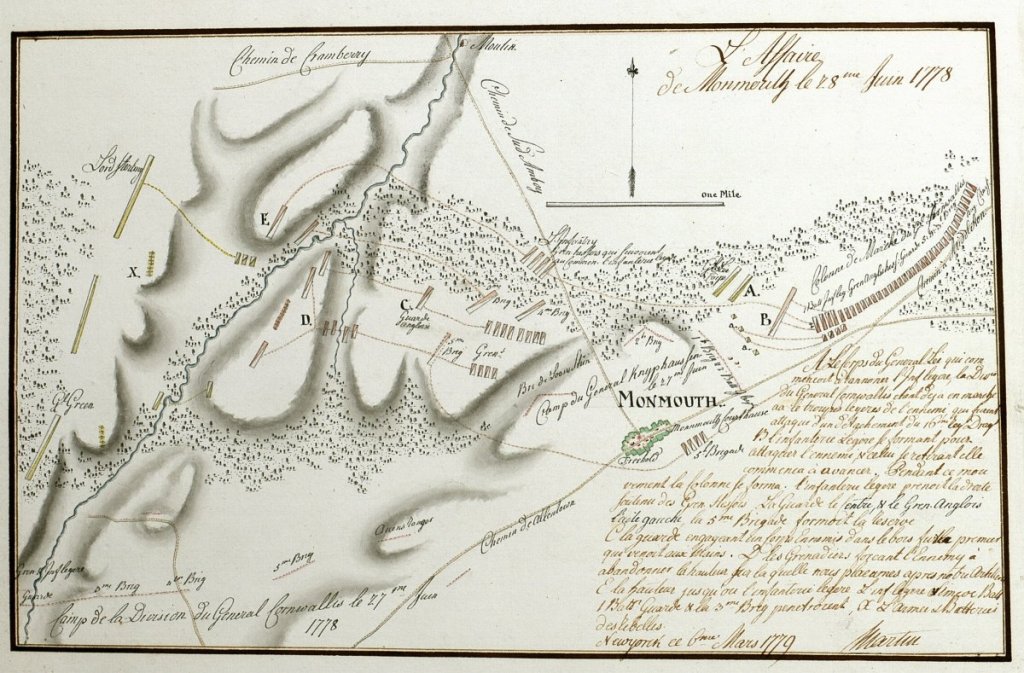 L'Affaire
de Monmouth le 28me Juin 1778
Chemin de Cramberry
Moulin
Chemin de Sud Amboy
one Mile
Lord Sterling
X.
E.
L'Infanterie
A.
B.
C.
Guarde
D.
4me Brig
Brig
5me
Brig
Gren.
2e Brig
Camp du General Knyphausen
le 27me Juin
MONMOUTH.
Monmouth Courthouse
Freehold
5me Brigade
Gl Green
Chemin de Allentown
Guarde
3me Brig
4me Brig
5me Brig
Camp de la Division du General Cornwallis le 27me Juin
1778
A. Le Corps du General Lee qui com
mencoit a canonner l'Inf legere, la Divon
du General Cornwallis etant deja en marche
aa le troupes legeres de l'ennemi, qui
attaque d'un detachement du 16me leg Drag
B l'infanterie legere se formant pour
attaquer l'ennemi & celui se retirant elle
commenca a avancer. Pendant ce mou
vement la Colonne se forma. l'infanterie legere prenoit la droite
soutenu des Gren Hessois. La Guarde le Centre & le Gren Anglois
l'aile gauche la 5me Brigade formoit la reserve
C la guarde engageant un corps d'ennemis dans le bois fut la premier
qui venoit aux mains. D les Grenadiers forcant l'Ennemy à
abandonner la hauteur sur la quelle nous placames apres notre Artillerie
E la hauteur jusqu'ou l'infanterie legere
1 Batt Guarde & la 3me Brig penetrerent, X l'Armee & Batteries
des rebelles
Newyork ce 6me Mars 1779
Martin